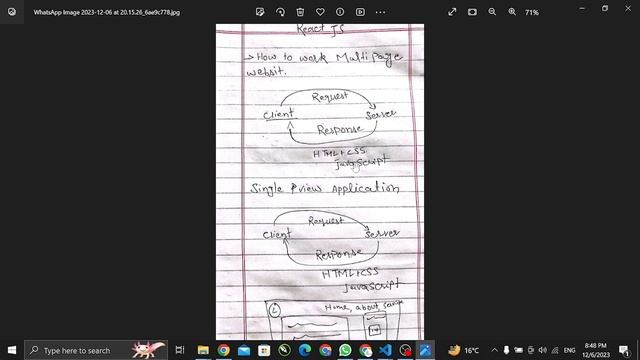 WhatsApp Image 2023-12-06 at 20.15.26_6ae9c778.jpg
71%
React JS
→ How to work Multi page
websit.
Request
Client
Server
Response
HTML+CSS
JavaScript
Single view Application
Request
Client
Server
Response
HTML+CSS
JavaScript
Home, about, Service
Type here to search
16°C
ENG
8:48 PM
12/6/2023